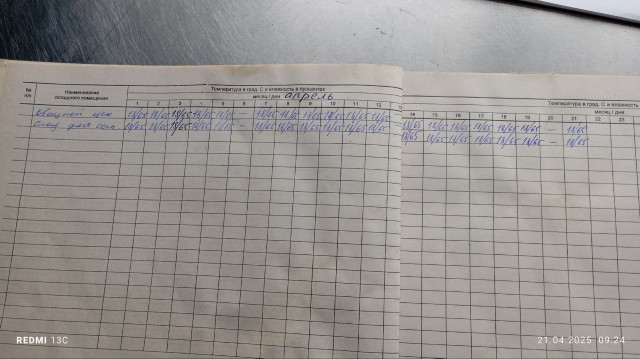 № п/п Наименование складского помещения
Температура в град. С и влажность в процентах
месяц / дни апрель
1 2 3 4 5 6 7 8 9 10 11 12
Овощной цех 18/65 18/65 18/65 18/65 18/65 – 18/65 18/65 18/65 18/65 18/65 18/65
18/65 18/65 18/65 18/65 – 18/65 18/65 18/65 18/65 18/65 18/65
Температура в град. С и влажность
месяц / дни
14 15 16 17 18 19 20 21 22 23
18/65 18/65 18/65 18/65 18/65 18/65 – 18/65
18/65 18/65 18/65 18/65 18/65 18/65 – 18/65
REDMI 13C
21.04.2025 09:24